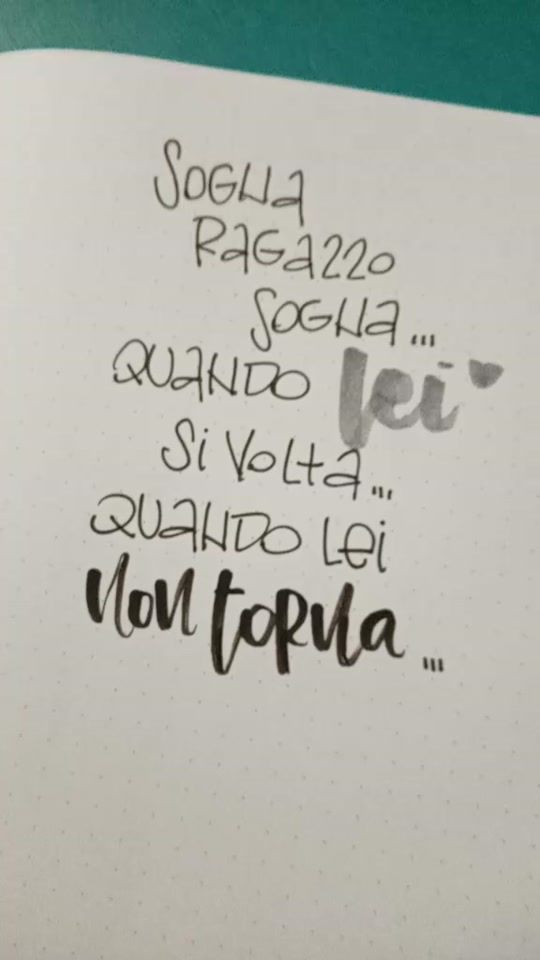 SOGNA
RAGAZZO
SOGNA...
QUANDO lei
Si VOLTA...
QUANDO Lei
non torna...